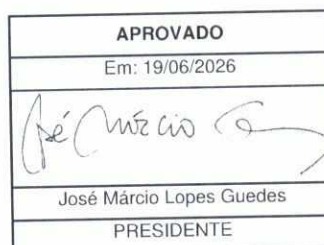 APROVADO
Em: 19/06/2026
José Márcio
José Márcio Lopes Guedes
PRESIDENTE